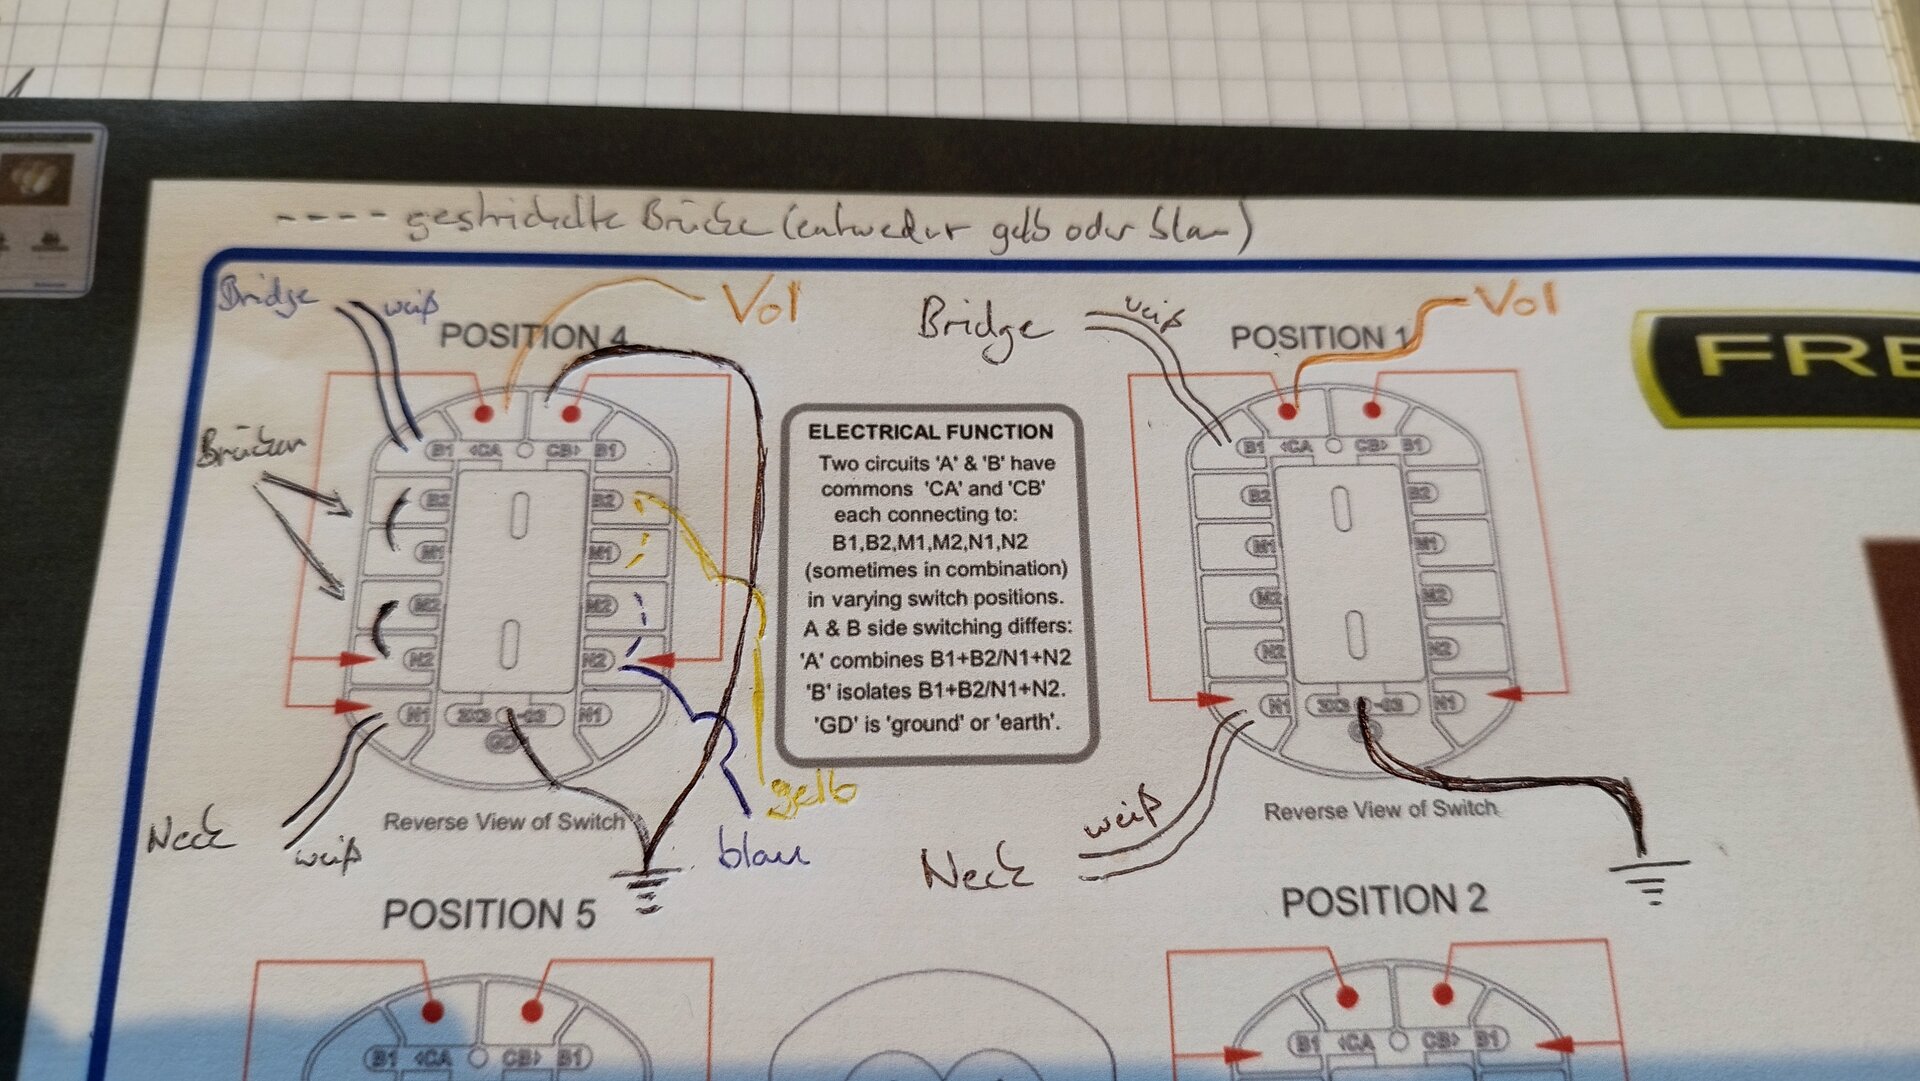 ---- gestrichelte Brücke (entweder gelb oder blau)
Bridge
weiß
Vol
POSITION 4
B1 CA CB B1
Brücken
B2 B2
M1 M1
M2 M2
N2 N2
N1 3X3 -03 N1
GD
Reverse View of Switch
Neck
weiß
gelb
blau
ELECTRICAL FUNCTION
Two circuits 'A' & 'B' have
commons 'CA' and 'CB'
each connecting to:
B1,B2,M1,M2,N1,N2
(sometimes in combination)
in varying switch positions.
A & B side switching differs:
'A' combines B1+B2/N1+N2
'B' isolates B1+B2/N1+N2.
'GD' is 'ground' or 'earth'.
Bridge
weiß
Vol
POSITION 1
B1 CA CB B1
B2 B2
M1 M1
M2 M2
N2 N2
N1 3X3 -03 N1
Reverse View of Switch
weiß
Neck
FRE
POSITION 5
B1 CA CB B1
POSITION 2
B1 CA CB B1